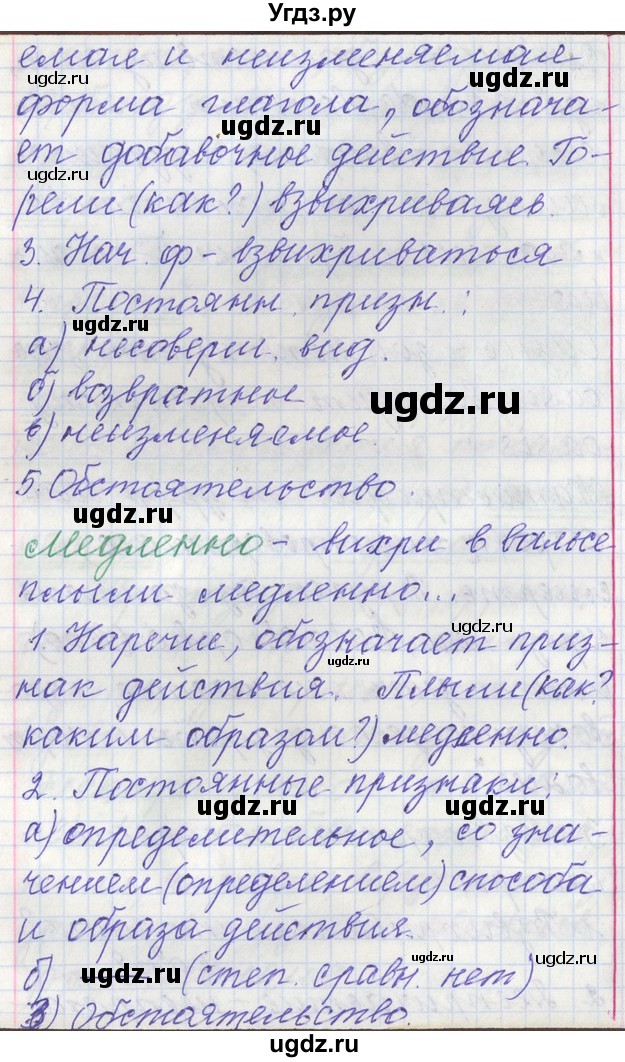 Угдз.ру
емая и неизменяемая
ugdz.ru ugdz.ru
форма глагола, обознача-
ugdz.ru
ет добавочное действие. Го-
рели (как?) взвихриваясь.
ugdz.ru
3. Нач. ф - взвихриваться
4. Постоянн. призн.:
ugdz.ru
а) несоверш. вид.
б) возвратное
ugdz.ru
в) неизменяемое.
5. Обстоятельство.
ugdz.ru
Медленно - вихри в вальсе
плыли медленно...
ugdz.ru
1. Наречие, обозначает приз-
ugdz.ru
нак действия. Плыли (как?
каким образом?) медленно.
2. Постоянные признаки:
ugdz.ru ugdz.ru
а) определительное, со зна-
чением (определением) способа
и образа действия.
б) ugdz.ru (степ. сравн. нет)
ugdz.ru ugdz.ru
3) Обстоятельство.
ugdz.ru